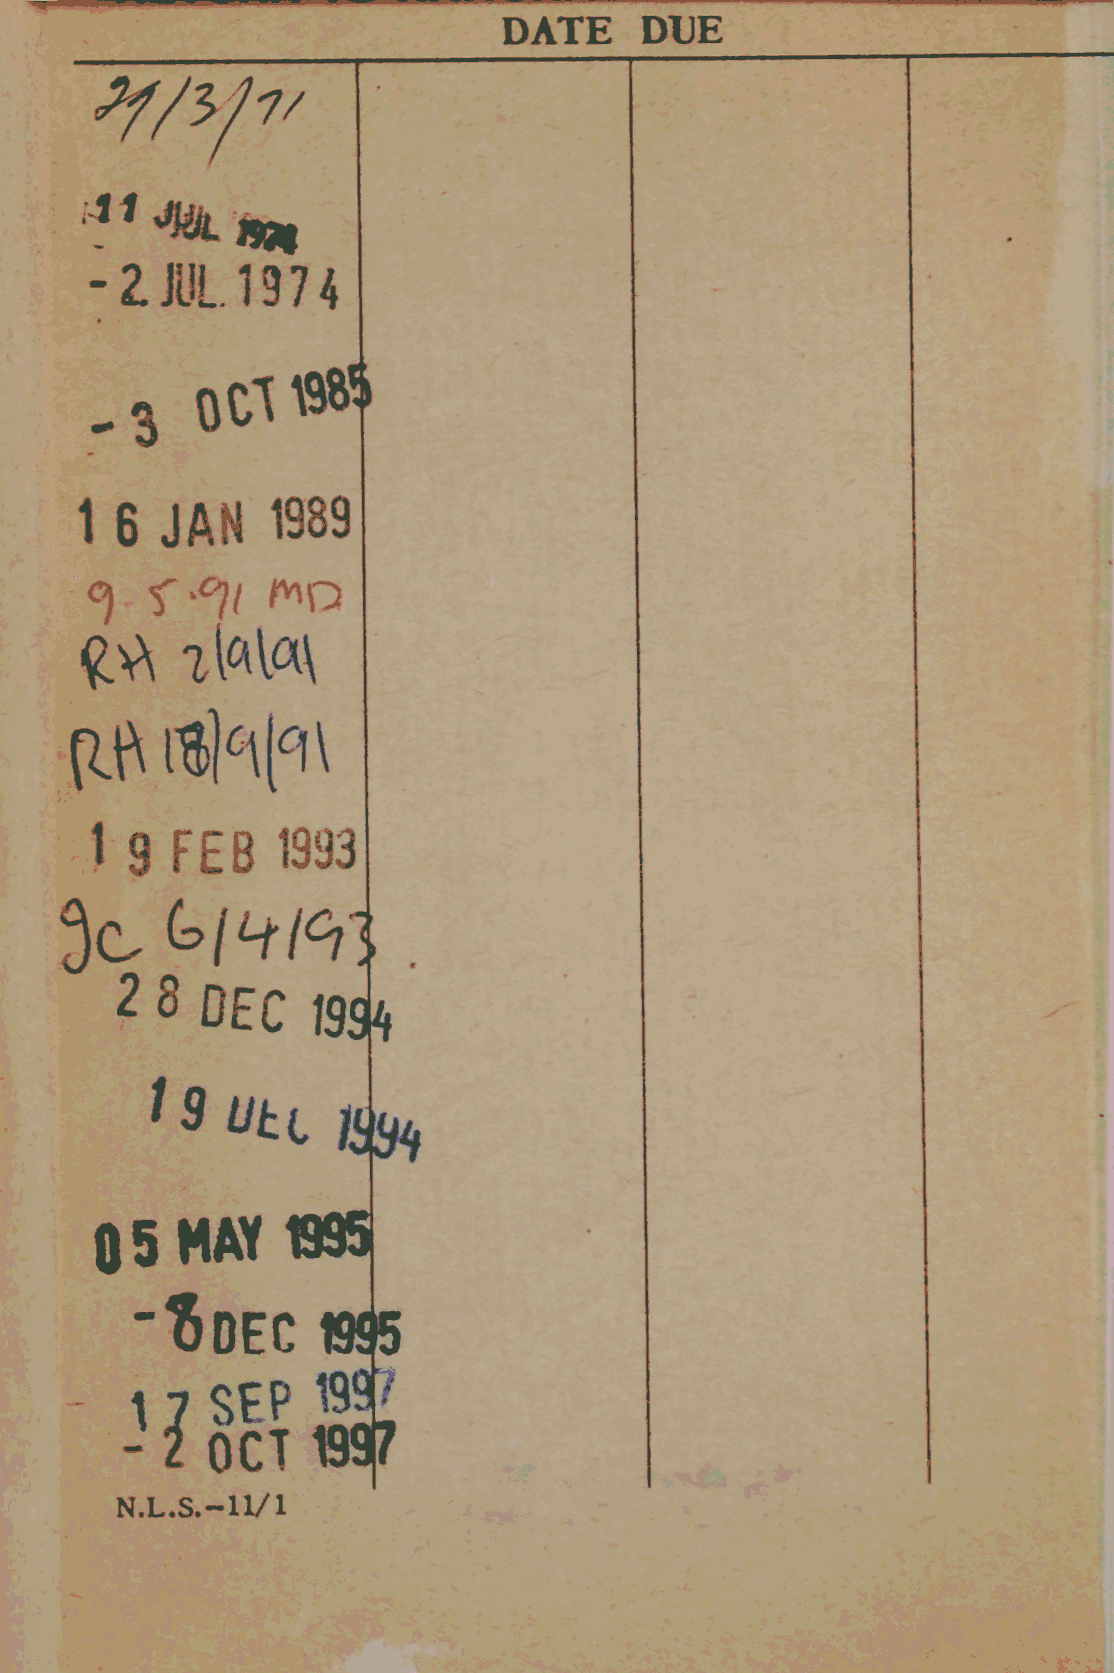 DATE DUE
29/3/71
11 JUL 1974
-2 JUL. 1974
-3 OCT 1985
16 JAN 1989
9.5.91 MD
RH 2/9/91
RH 18/9/91
19 FEB 1993
gc 6/4/93
28 DEC 1994
19 DEC 1994
05 MAY 1995
-8 DEC 1995
17 SEP 1997
-2 OCT 1997
N.L.S.-11/1